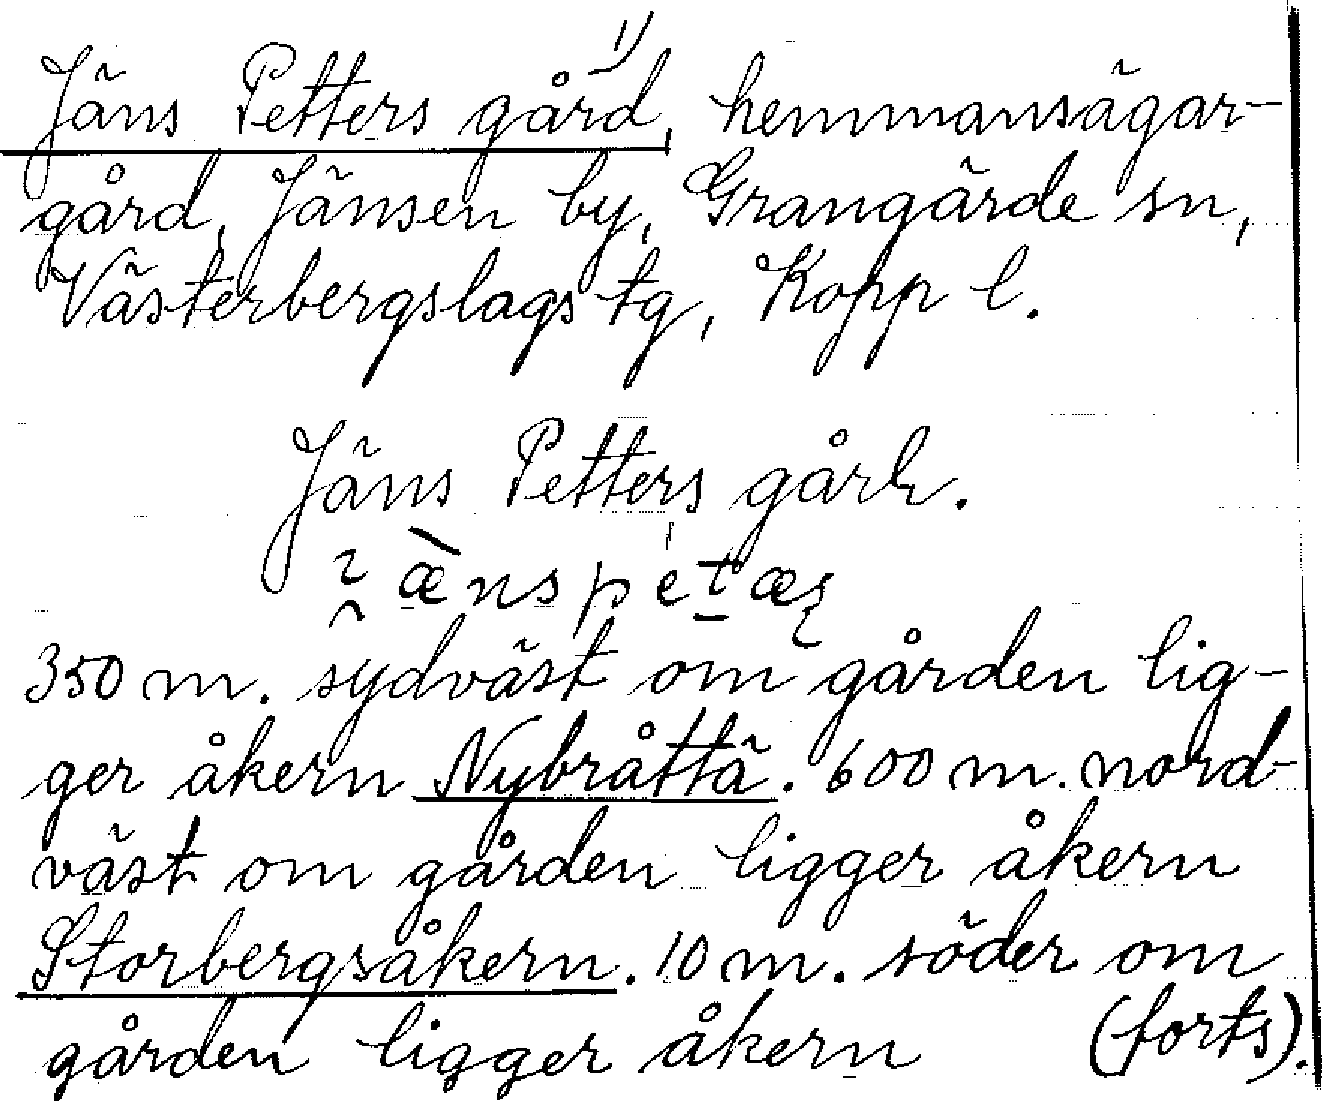 Jäns Petters gård, 1) hemmansägar-
gård, Jänsen by, Grangärde sn,
Västerbergslags tg, Kopp l.
Jäns Petters gårk.
350 m. sydväst om gården lig-
ger åkern Nybråttä. 600 m. nord-
väst om gården ligger åkern
Storbergsåkern. 10 m. söder om
gården ligger åkern (forts).